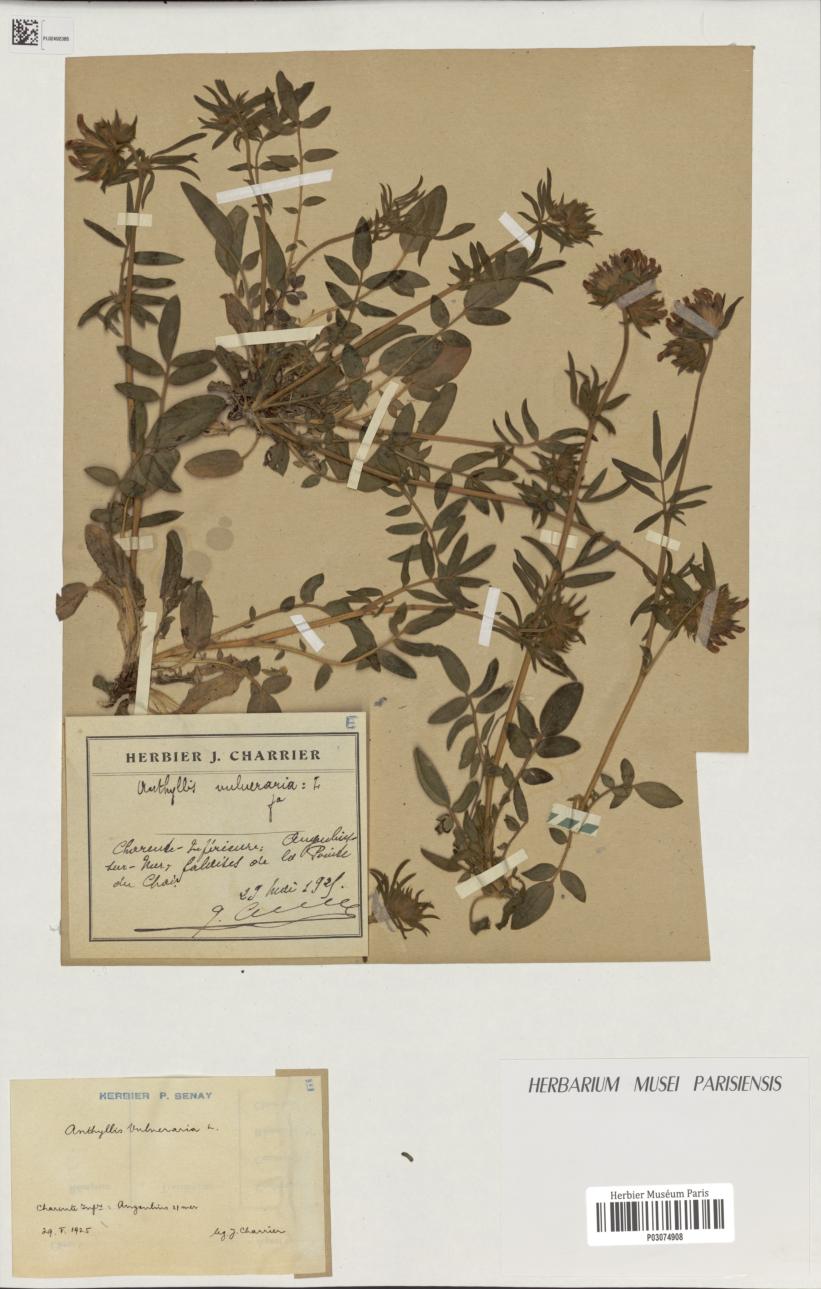 E
HERBIER J. CHARRIER
Anthyllis vulneraria : L
fa
Charente-Inférieure; Angoulins-
sur-Mer, falaises de la Pointe
du Chay.
29 Mai 1925.
HERBIER P. SENAY
E
Anthyllis Vulneraria L.
Charente Infre : Angoulins s/ mer
29. V. 1925
leg. J. Charrier
HERBARIUM MUSEI PARISIENSIS
Herbier Muséum Paris
P03074908